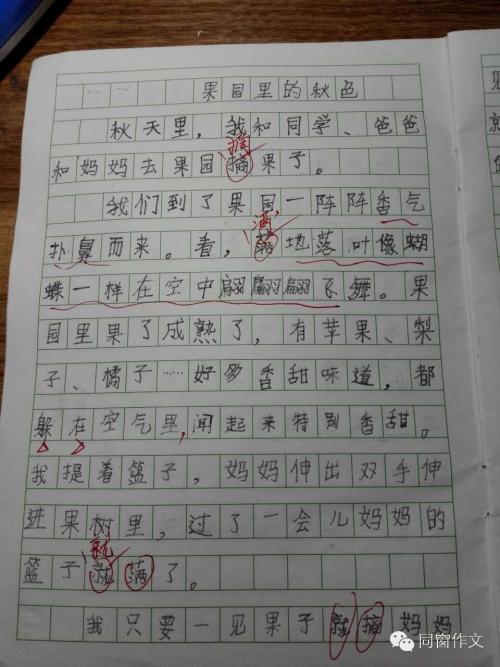 果园里的秋色
秋天里，我和同学、爸爸 见
和妈妈去果园摘果子。 就
摘
我们到了果园一阵阵香气
扑鼻而来。看，满地落叶像蝴
满
蝶一样在空中翩翩翩飞舞。果
园里果了成熟了，有苹果、梨
子、橘子……好多香甜味道，都
躲在空气里，闻起来特别香甜。
我提着篮子，妈妈伸出双手伸
进果树里，过了一会儿妈妈的
就
篮子就满了。
我只要一见果子就摘妈妈
同窗作文